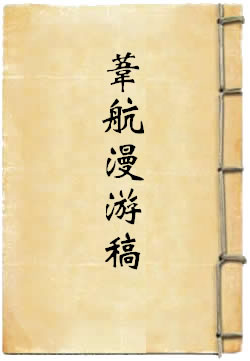 葦航漫游稿